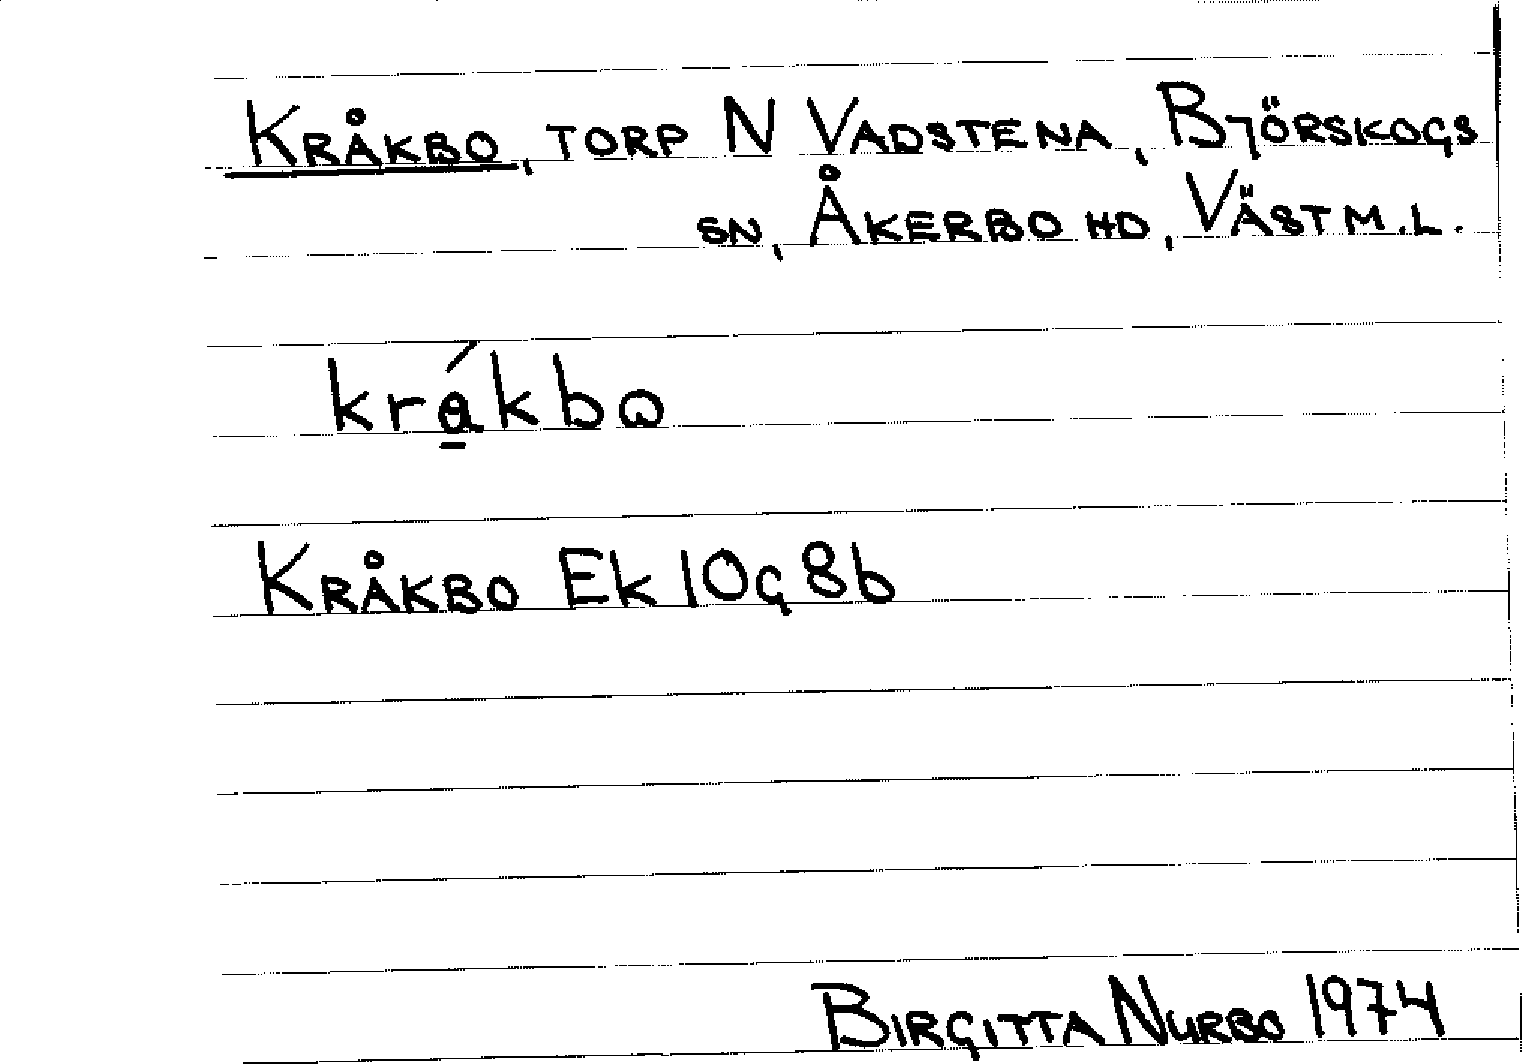 KRÅKBO, TORP N VADSTENA, BJÖRSKOGS
SN, ÅKERBO HD, VÄSTM.L.
krá̱kbω
KRÅKBO Ek 10G 8b
BIRGITTA NURBO 1974